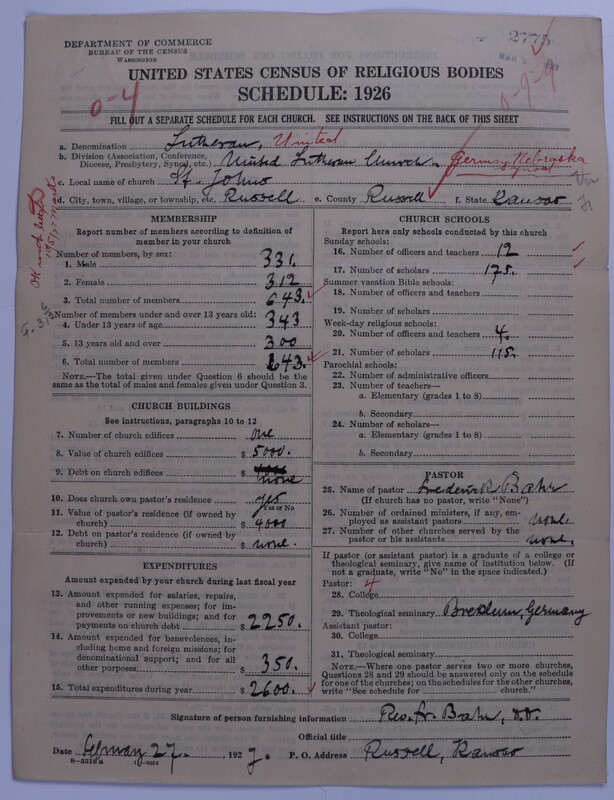 2775
DEPARTMENT OF COMMERCE
BUREAU OF THE CENSUS
WASHINGTON
UNITED STATES CENSUS OF RELIGIOUS BODIES
SCHEDULE: 1926
0-4
0-9-9
FILL OUT A SEPARATE SCHEDULE FOR EACH CHURCH. SEE INSTRUCTIONS ON THE BACK OF THIS SHEET
a. Denomination Lutheran, United
b. Division (Association, Conference, Diocese, Presbytery, Synod, etc.) United Lutheran Church Germany Nebraska Synod
c. Local name of church St. Johns
d. City, town, village, or township, etc. Russell e. County Russell f. State Kansas
MEMBERSHIP
Report number of members according to definition of
member in your church
Number of members, by sex:
1. Male 331
2. Female 312
3. Total number of members 643.
Number of members under and over 13 years old:
4. Under 13 years of age 343
5. 13 years old and over 300
6. Total number of members 643.
NOTE.—The total given under Question 6 should be the
same as the total of males and females given under Question 3.
CHURCH BUILDINGS
See instructions, paragraphs 10 to 12
7. Number of church edifices one
8. Value of church edifices $ 5000.
9. Debt on church edifices $ none
10. Does church own pastor's residence yes
Yes or No
11. Value of pastor's residence (if owned by
church) $ 4000
12. Debt on pastor's residence (if owned by
church) $ none.
EXPENDITURES
Amount expended by your church during last fiscal year
13. Amount expended for salaries, repairs,
and other running expenses; for im-
provements or new buildings; and for
payments on church debt $ 2250.
14. Amount expended for benevolences, in-
cluding home and foreign missions; for
denominational support; and for all
other purposes $ 350.
15. Total expenditures during year $ 2600.
CHURCH SCHOOLS
Report here only schools conducted by this church
Sunday schools:
16. Number of officers and teachers 12
17. Number of scholars 175.
Summer vacation Bible schools:
18. Number of officers and teachers
19. Number of scholars
Week-day religious schools:
20. Number of officers and teachers 4.
21. Number of scholars 115.
Parochial schools:
22. Number of administrative officers
23. Number of teachers—
a. Elementary (grades 1 to 8)
b. Secondary
24. Number of scholars—
a. Elementary (grades 1 to 8)
b. Secondary
PASTOR
25. Name of pastor Frederik Bahr
(If church has no pastor, write "None")
26. Number of ordained ministers, if any, em-
ployed as assistant pastors none.
27. Number of other churches served by the
pastor or his assistants none.
If pastor (or assistant pastor) is a graduate of a college or
theological seminary, give name of institution below. (If
not a graduate, write "No" in the space indicated.)
Pastor: 4
28. College
29. Theological seminary Breklum, Germany
Assistant pastor:
30. College
31. Theological seminary
NOTE.—Where one pastor serves two or more churches,
Questions 28 and 29 should be answered only on the schedule
for one of the churches; on the schedules for the other churches,
write "See schedule for church."
Signature of person furnishing information Rev. Fr. Bahr, D.D.
Official title
Date Febrnary 27. 1927. P. O. Address Russell, Kansas
8—5518a